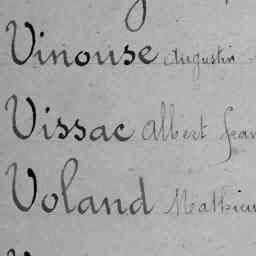 Vinouse Augustin
Vissac Albert Jean
Voland Mathieu